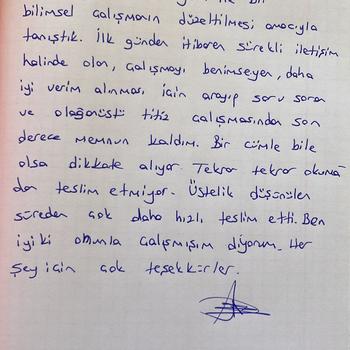 bilimsel çalışmanın düzeltilmesi amacıyla
tanıştık. İlk günden itibaren sürekli iletişim
halinde olan, çalışmayı benimseyen, daha
iyi verim alınması için arayıp soru soran
ve olağanüstü titiz çalışmasından son
derece memnun kaldım. Bir cümle bile
olsa dikkate alıyor. Tekrar tekrar okuma
dan teslim etmiyor. Üstelik düşünülen
süreden çok daha hızlı teslim etti. Ben
iyiki onunla çalışmışım diyorum. Her
şey için çok teşekkürler.